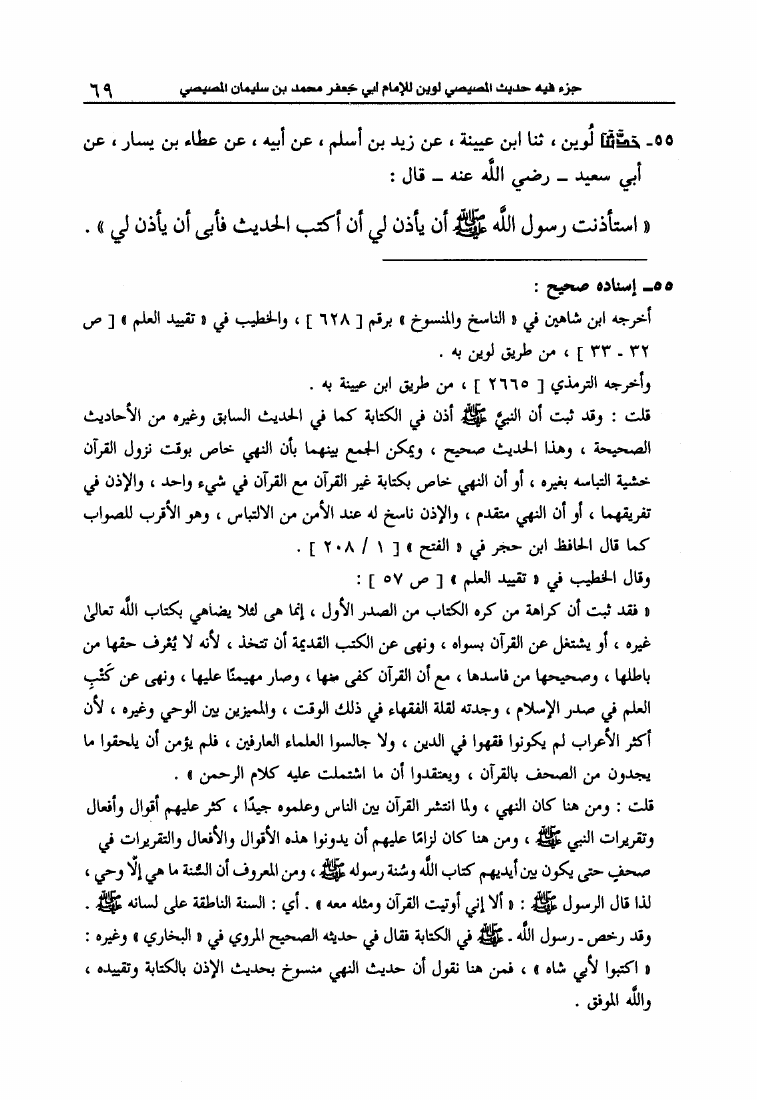 جزء فيه حديث المصيصي لوين للإمام ابي جعفر محمد بن سليمان المصيصي ٦٩
٥٥- حدثنا لُوين ، ثنا ابن عيينة ، عن زيد بن أسلم ، عن أبيه ، عن عطاء بن يسار ، عن
أبي سعيد – رضي اللَّه عنه – قال :
« استأذنت رسول اللَّه ﷺ أن يأذن لي أن أكتب الحديث فأبى أن يأذن لي » .
٥٥- إسناده صحيح :
أخرجه ابن شاهين في « الناسخ والمنسوخ » برقم [ ٦٢٨ ] ، والخطيب في « تقييد العلم » [ ص
٣٢ - ٣٣ ] ، من طريق لوين به .
وأخرجه الترمذي [ ٢٦٦٥ ] ، من طريق ابن عيينة به .
قلت : وقد ثبت أن النبيَّ ﷺ أذن في الكتابة كما في الحديث السابق وغيره من الأحاديث
الصحيحة ، وهذا الحديث صحيح ، ويمكن الجمع بينهما بأن النهي خاص بوقت نزول القرآن
خشية التباسه بغيره ، أو أن النهي خاص بكتابة غير القرآن مع القرآن في شيء واحد ، والإذن في
تفريقهما ، أو أن النهي متقدم ، والإذن ناسخ له عند الأمن من الالتباس ، وهو الأقرب للصواب
كما قال الحافظ ابن حجر في « الفتح » [ ١ / ٢٠٨ ] .
وقال الخطيب في « تقييد العلم » [ ص ٥٧ ] :
« فقد ثبت أن كراهة من كره الكتاب من الصدر الأول ، إنما هى لئلا يضاهي بكتاب اللَّه تعالىٰ
غيره ، أو يشتغل عن القرآن بسواه ، ونهى عن الكتب القديمة أن تتخذ ، لأنه لا يُعْرف حقها من
باطلها ، وصحيحها من فاسدها ، مع أن القرآن كفى منها ، وصار مهيمنًا عليها ، ونهى عن كَتْبِ
العلم في صدر الإسلام ، وجدته لقلة الفقهاء في ذلك الوقت ، والمميزين بين الوحي وغيره ، لأن
أكثر الأعراب لم يكونوا فقهوا في الدين ، ولا جالسوا العلماء العارفين ، فلم يؤمن أن يلحقوا ما
يجدون من الصحف بالقرآن ، ويعتقدوا أن ما اشتملت عليه كلام الرحمن » .
قلت : ومن هنا كان النهي ، ولما انتشر القرآن بين الناس وعلموه جيدًا ، كثر عليهم أقوال وأفعال
وتقريرات النبي ﷺ ، ومن هنا كان لزامًا عليهم أن يدونوا هذه الأقوال والأفعال والتقريرات في
صحفٍ حتى يكون بين أيديهم كتاب اللَّه وسُنة رسوله ﷺ ، ومن المعروف أن السُنة ما هي إلَّا وحي ،
لذا قال الرسول ﷺ : « ألا إني أوتيت القرآن ومثله معه » . أي : السنة الناطقة على لسانه ﷺ .
وقد رخص - رسول اللَّه - ﷺ في الكتابة فقال في حديثه الصحيح المروي في « البخاري » وغيره :
« اكتبوا لأبي شاه » ، فمن هنا نقول أن حديث النهي منسوخ بحديث الإذن بالكتابة وتقييده ،
واللَّه الموفق .